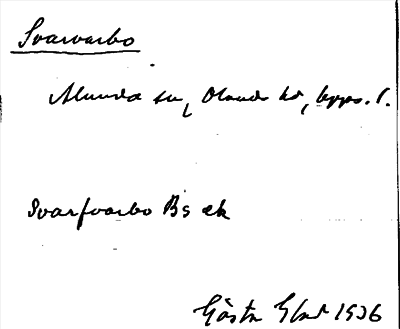 Svarvarbo
Alunda sn, Olands hd, Upps. l.
Svarfvarbo Bs ek
Gösta 1936